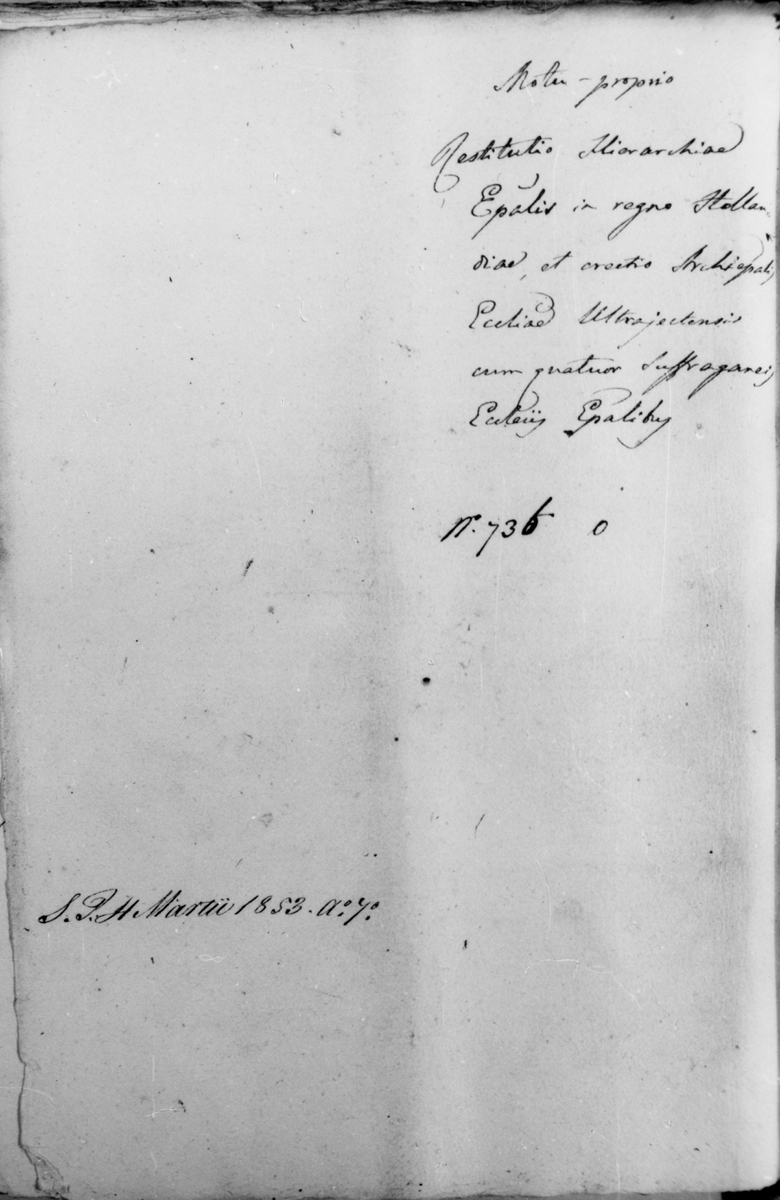 Motu-proprio
Restitutio Hierarchiae
Epãlis in regno Hollan-
diae, et erectio Archiepalis
Eccliae Ultrajectensis
cum quatuor Suffraganeis
Eccleiis Epalibus
N.º 736 0
S. P. 4 Martii 1853. Aº. 7º.